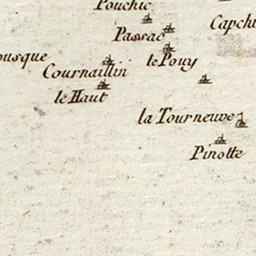 Pouchic
Capch
Passac
ousque
le Pouy
Cournaillin
le Haut
la Tourneuve
Pinotte